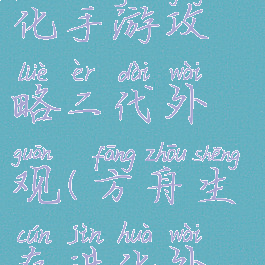 化手游攻
lüè èr dài wài
略二代外
guān fāng zhōu shēng
观(方舟生
cún jìn huà wài
存进化外